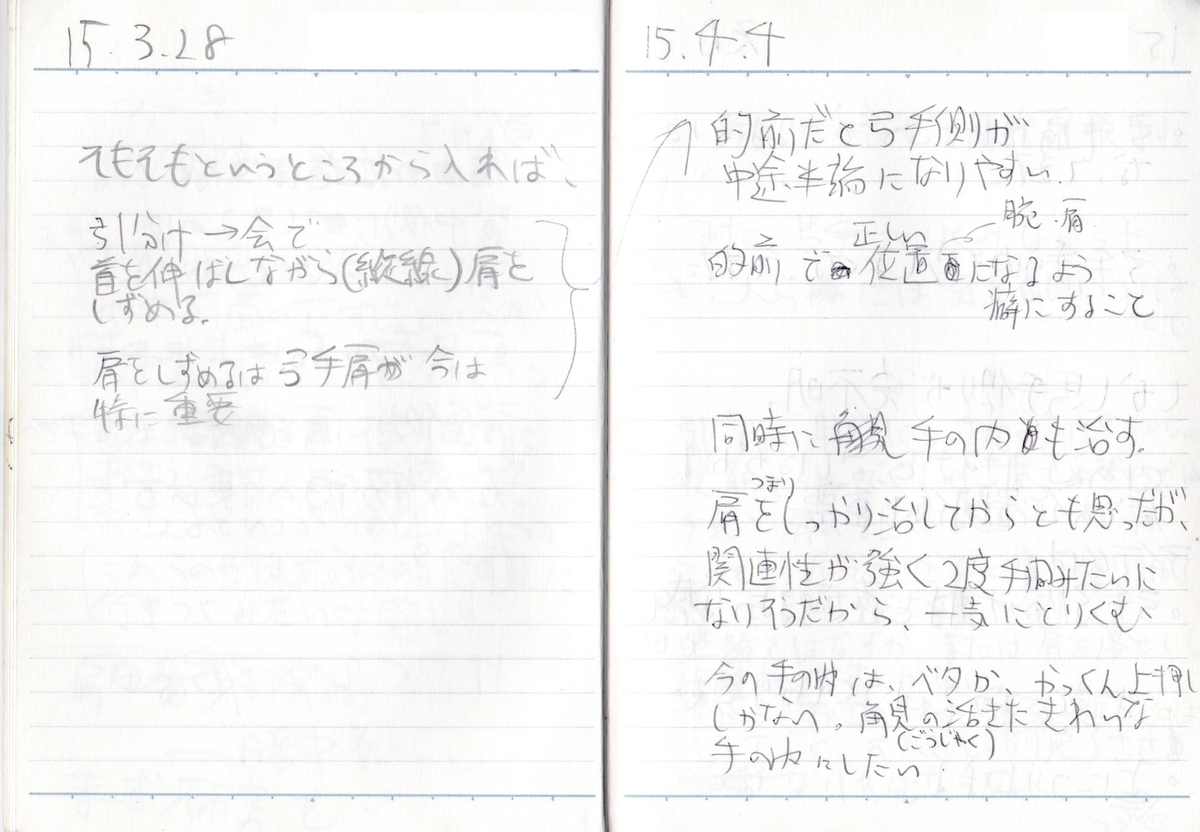 15.3.28
そもそもというところから入れば、
引分け→会で
首を伸ばしながら(縦線)肩を
しずめる。
肩をしずめるは弓手肩が今は
特に重要
15.4.4
的前だと弓手側が
中途半端になりやすい.
腕・肩
正しい
的前で位置になるよう
癖にすること
同時に角見 手の内も治す.
つまり
肩をしっかり治してからとも思ったが、
関連性が強く2度手間みたいに
なりそうだから、一気にとりくむ、
今の手の内は、ベタか、かっくん上押し
しかない。角見の活きたきれいな
(ごうじゃく)
手の内にしたい.